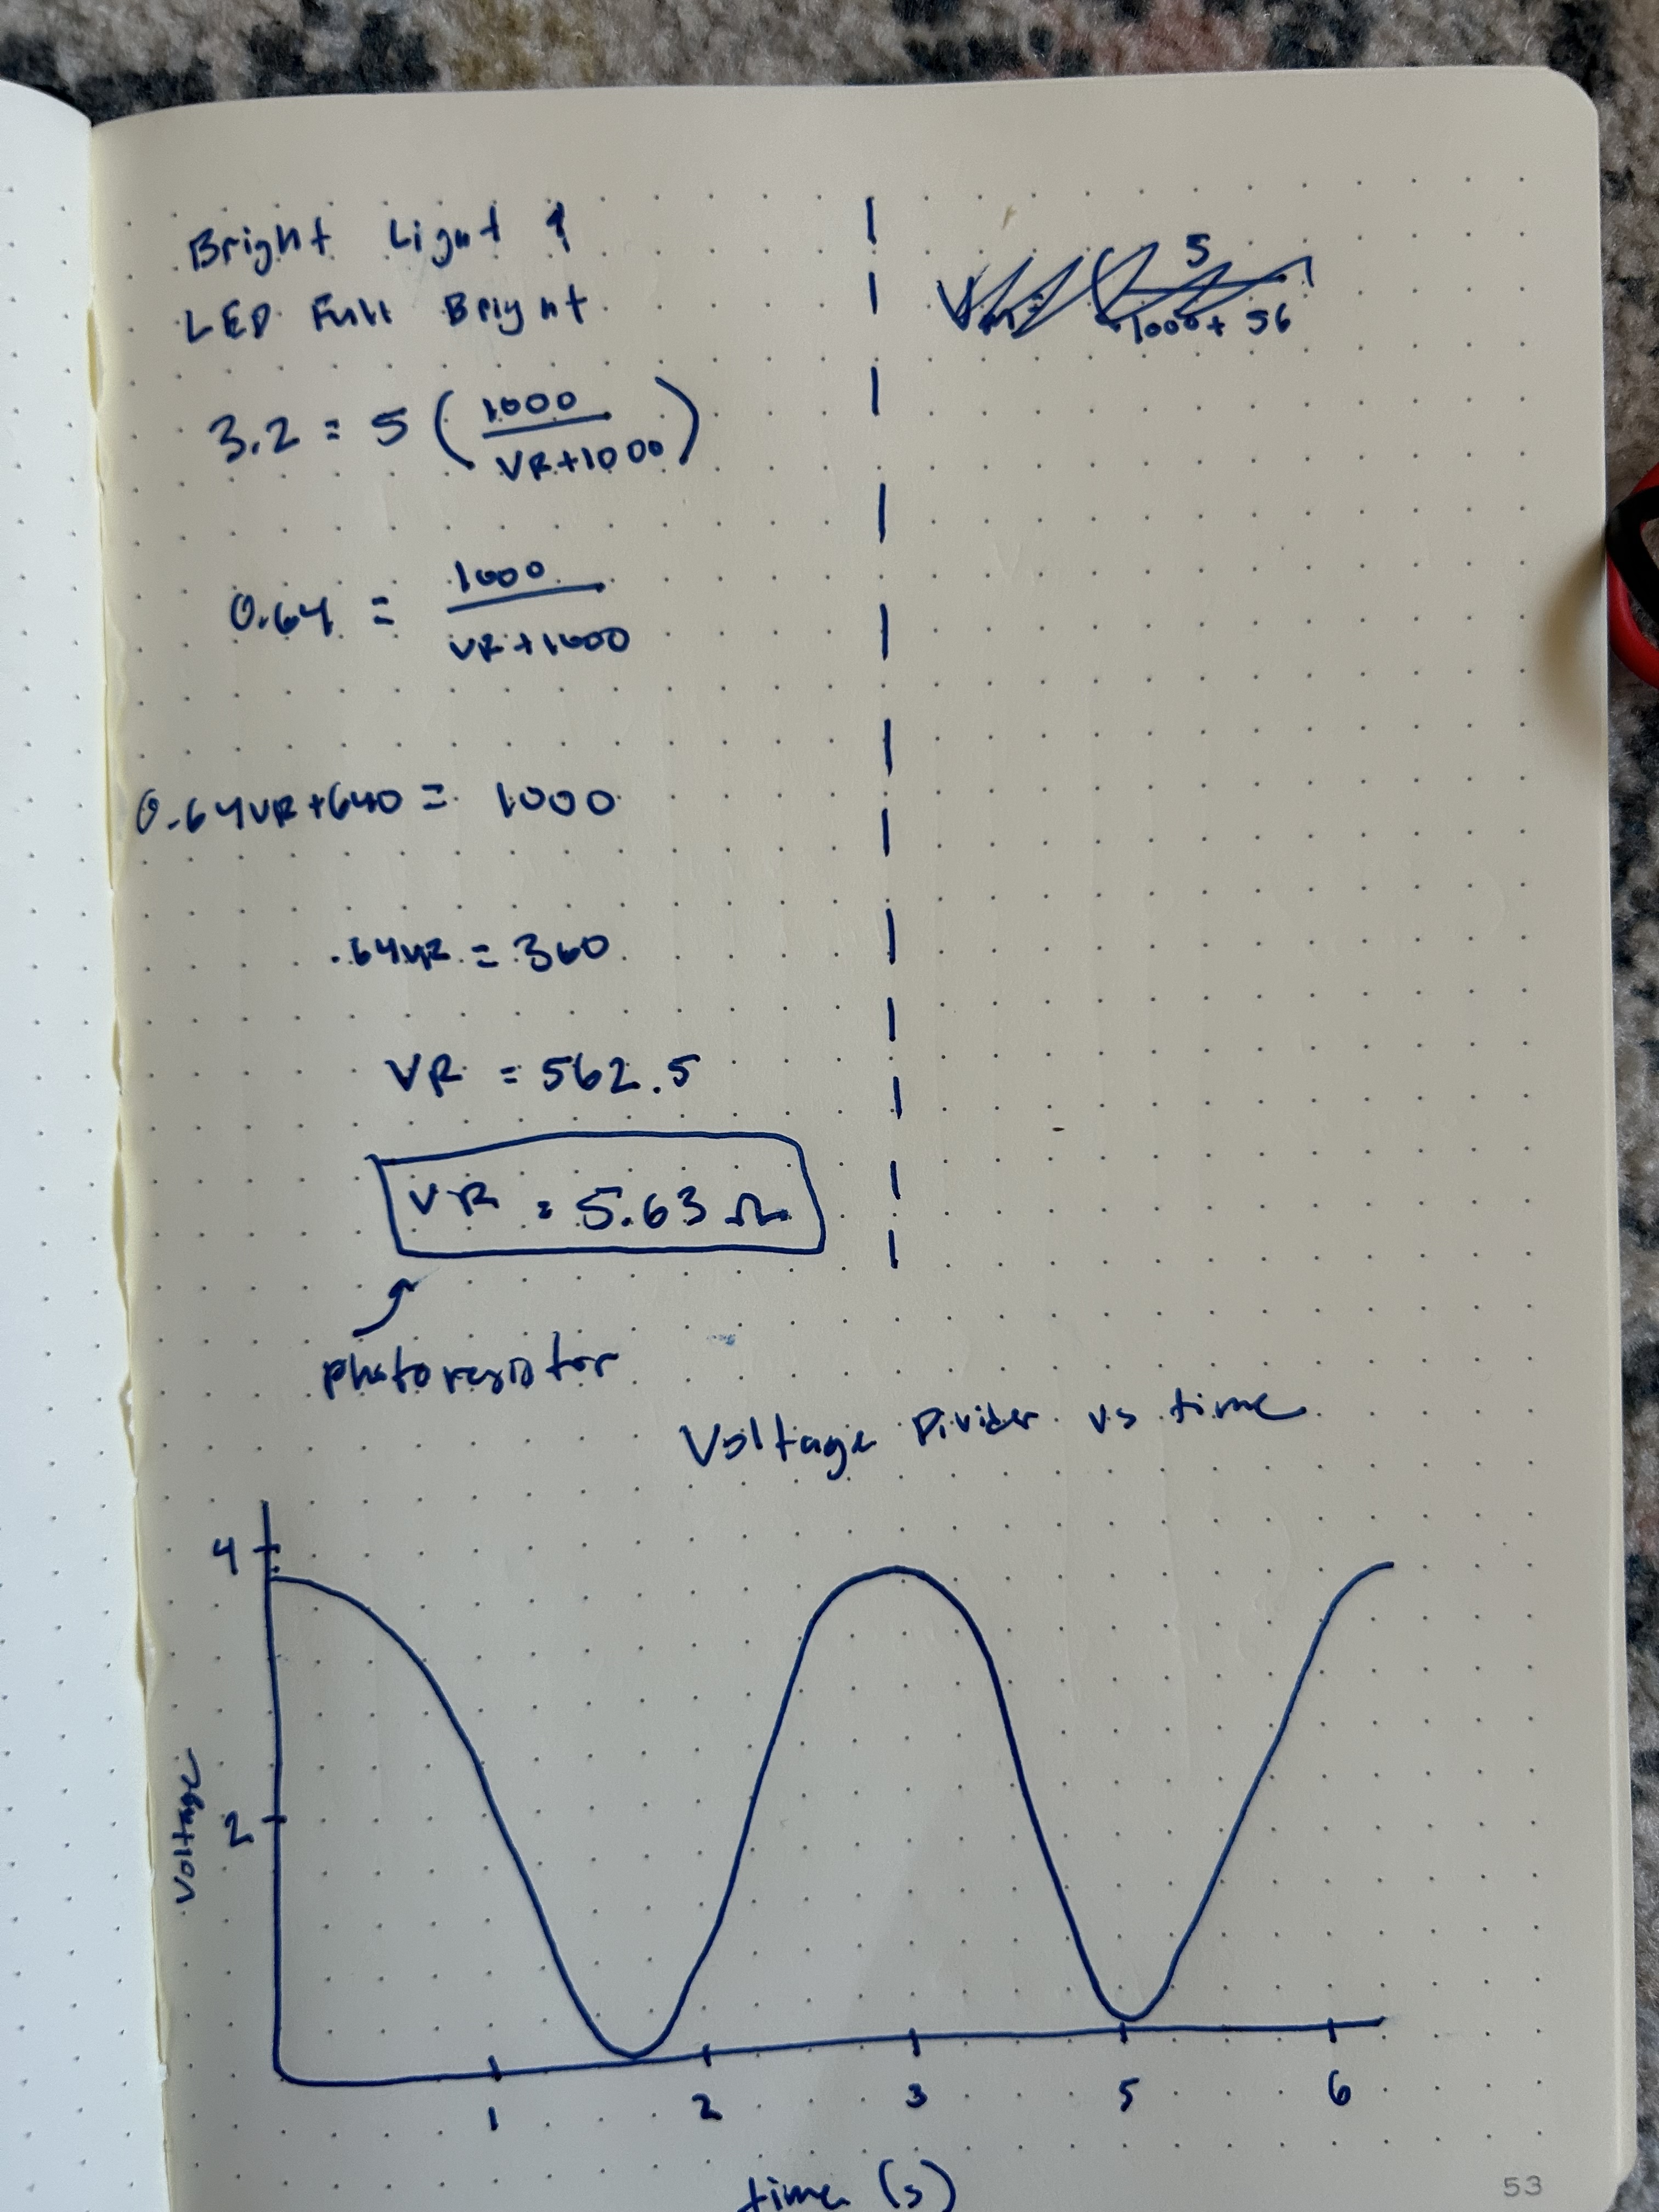 Bright Light &
LED Full Bright
3.2 = 5 (1000 / VR+1000)
0.64 = 1000 / VR+1000
0.64VR+640 = 1000
.64VR = 360
VR = 562.5
VR = 5.63 Ω
photoresistor
5
1000 + 56
Voltage Divider vs time
4
2
Voltage
1 2 3 5 6
time (s)
53